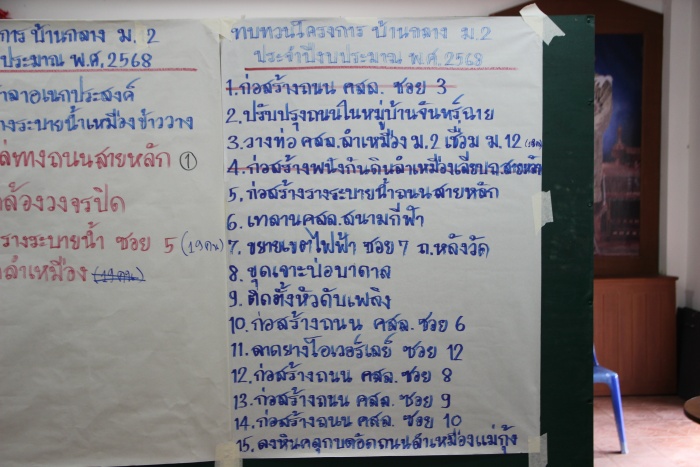 การ บ้านกลาง ม. 2
ประมาณ พ.ศ. 2568
าลาอเนกประสงค์
างระบายน้ำเหมืองข้าววาง
ล่ทางถนนสายหลัก ①
ล้องวงจรปิด
รางระบายน้ำ ซอย 5 (19คน)
ลำเหมือง (19คน)
ทบทวนโครงการ บ้านกลาง ม.2
ประจำปีงบประมาณ พ.ศ. 2568
1. ก่อสร้างถนน คสล. ซอย 3
2. ปรับปรุงถนนในหมู่บ้านจันทร์ฉาย
3. วางท่อ คสล.ลำเหมือง ม.2 เชื่อม ม.12
4. ก่อสร้างพนังกันดินลำเหมืองเลียบถ.สายหลัก
5. ก่อสร้างรางระบายน้ำถนนสายหลัก
6. เทลานคสล.สนามกีฬา
7. ขยายเขตไฟฟ้า ซอย 7 ถ.หลังวัด
8. ขุดเจาะบ่อบาดาล
9. ติดตั้งหัวดับเพลิง
10. ก่อสร้างถนน คสล. ซอย 6
11. ลาดยางโอเวอร์เลย์ ซอย 12
12. ก่อสร้างถนน คสล. ซอย 8
13. ก่อสร้างถนน คสล. ซอย 9
14. ก่อสร้างถนน คสล. ซอย 10
15. ลงหินคลุกบดอัดถนนลำเหมืองแม่กุ้ง